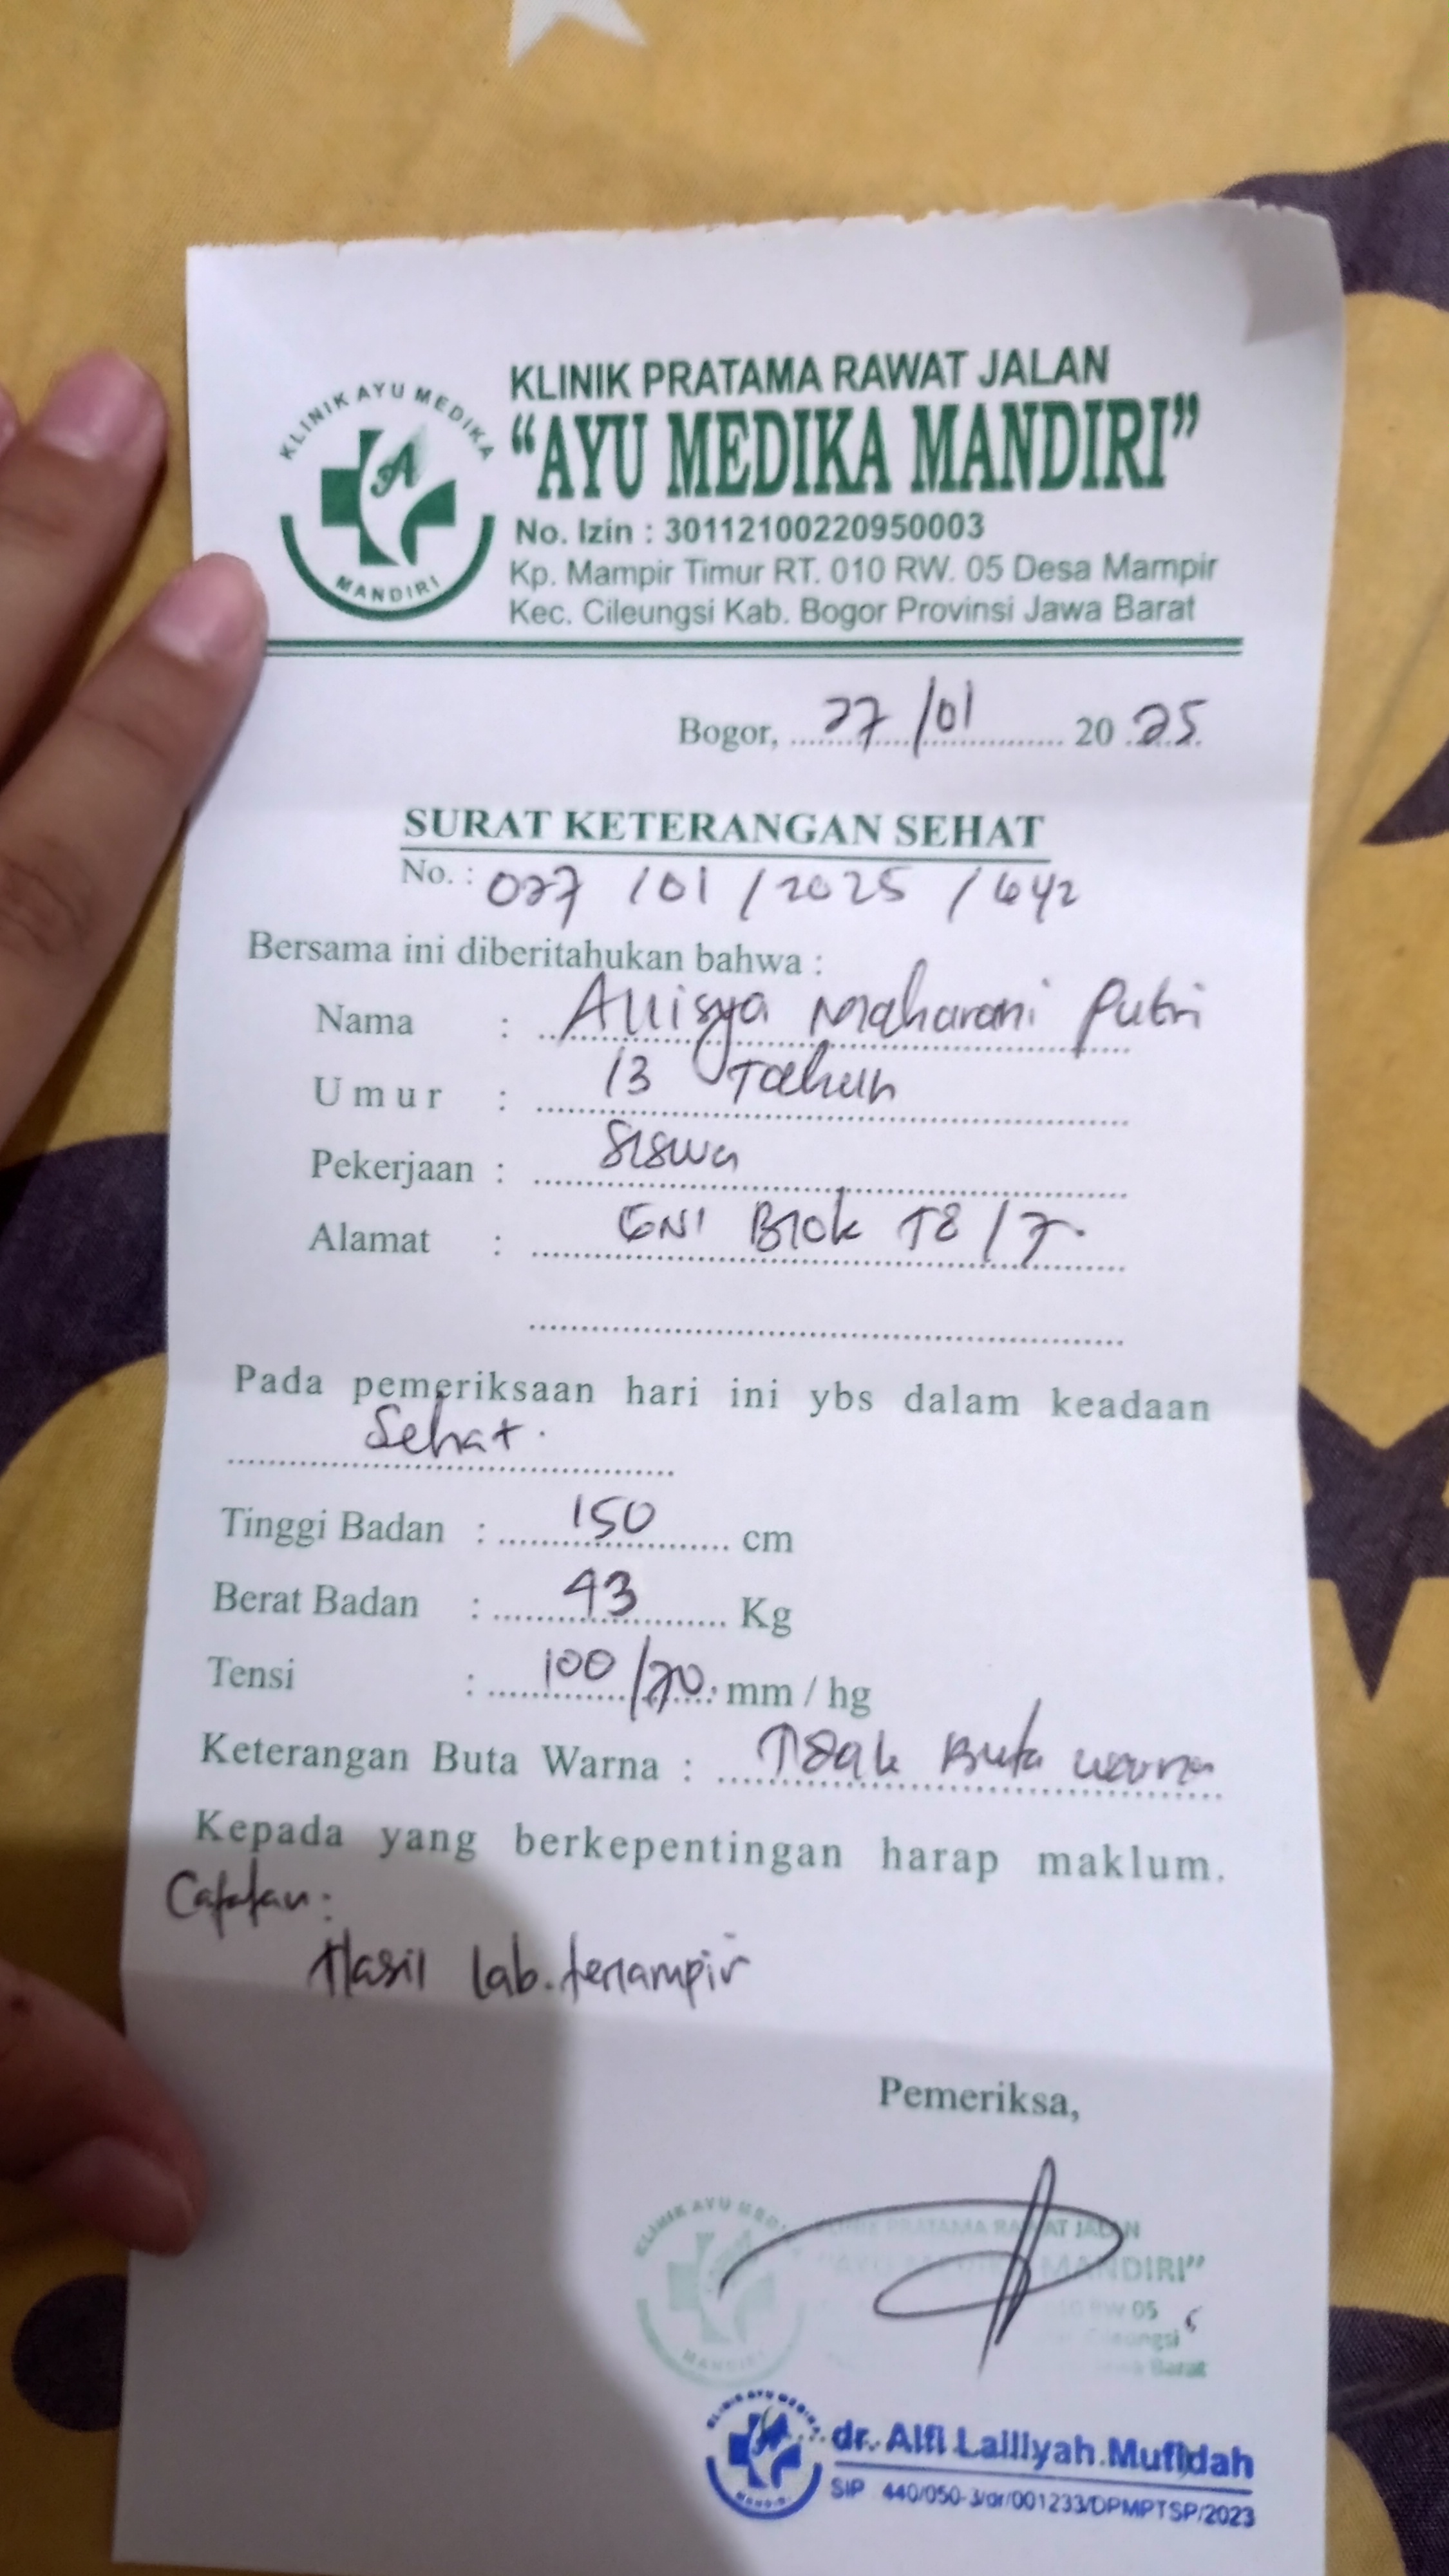 KLINIK AYU MEDIKA
MANDIRI
KLINIK PRATAMA RAWAT JALAN
“AYU MEDIKA MANDIRI”
No. Izin : 30112100220950003
Kp. Mampir Timur RT. 010 RW. 05 Desa Mampir
Kec. Cileungsi Kab. Bogor Provinsi Jawa Barat
Bogor, 27/01 2025
SURAT KETERANGAN SEHAT
No. : 027 /01 /2025 /642
Bersama ini diberitahukan bahwa :
Nama : Allisya Maharani Putri
Umur : 13 Tahun
Pekerjaan : Siswa
Alamat : GNI Blok T8/7.
Pada pemeriksaan hari ini ybs dalam keadaan
Sehat.
Tinggi Badan : 150 cm
Berat Badan : 43 Kg
Tensi : 100/70 mm / hg
Keterangan Buta Warna : Tidak Buta warna
Kepada yang berkepentingan harap maklum.
Catatan:
Hasil lab. terlampir
Pemeriksa,
KLINIK AYU MEDI
RAWAT JALAN
MANDIRI”
RW 05
Barat
MANDIRI
dr. Alfi Lailiyah Mufidah
SIP 440/050-3/dr/001233/DPMPTSP/2023